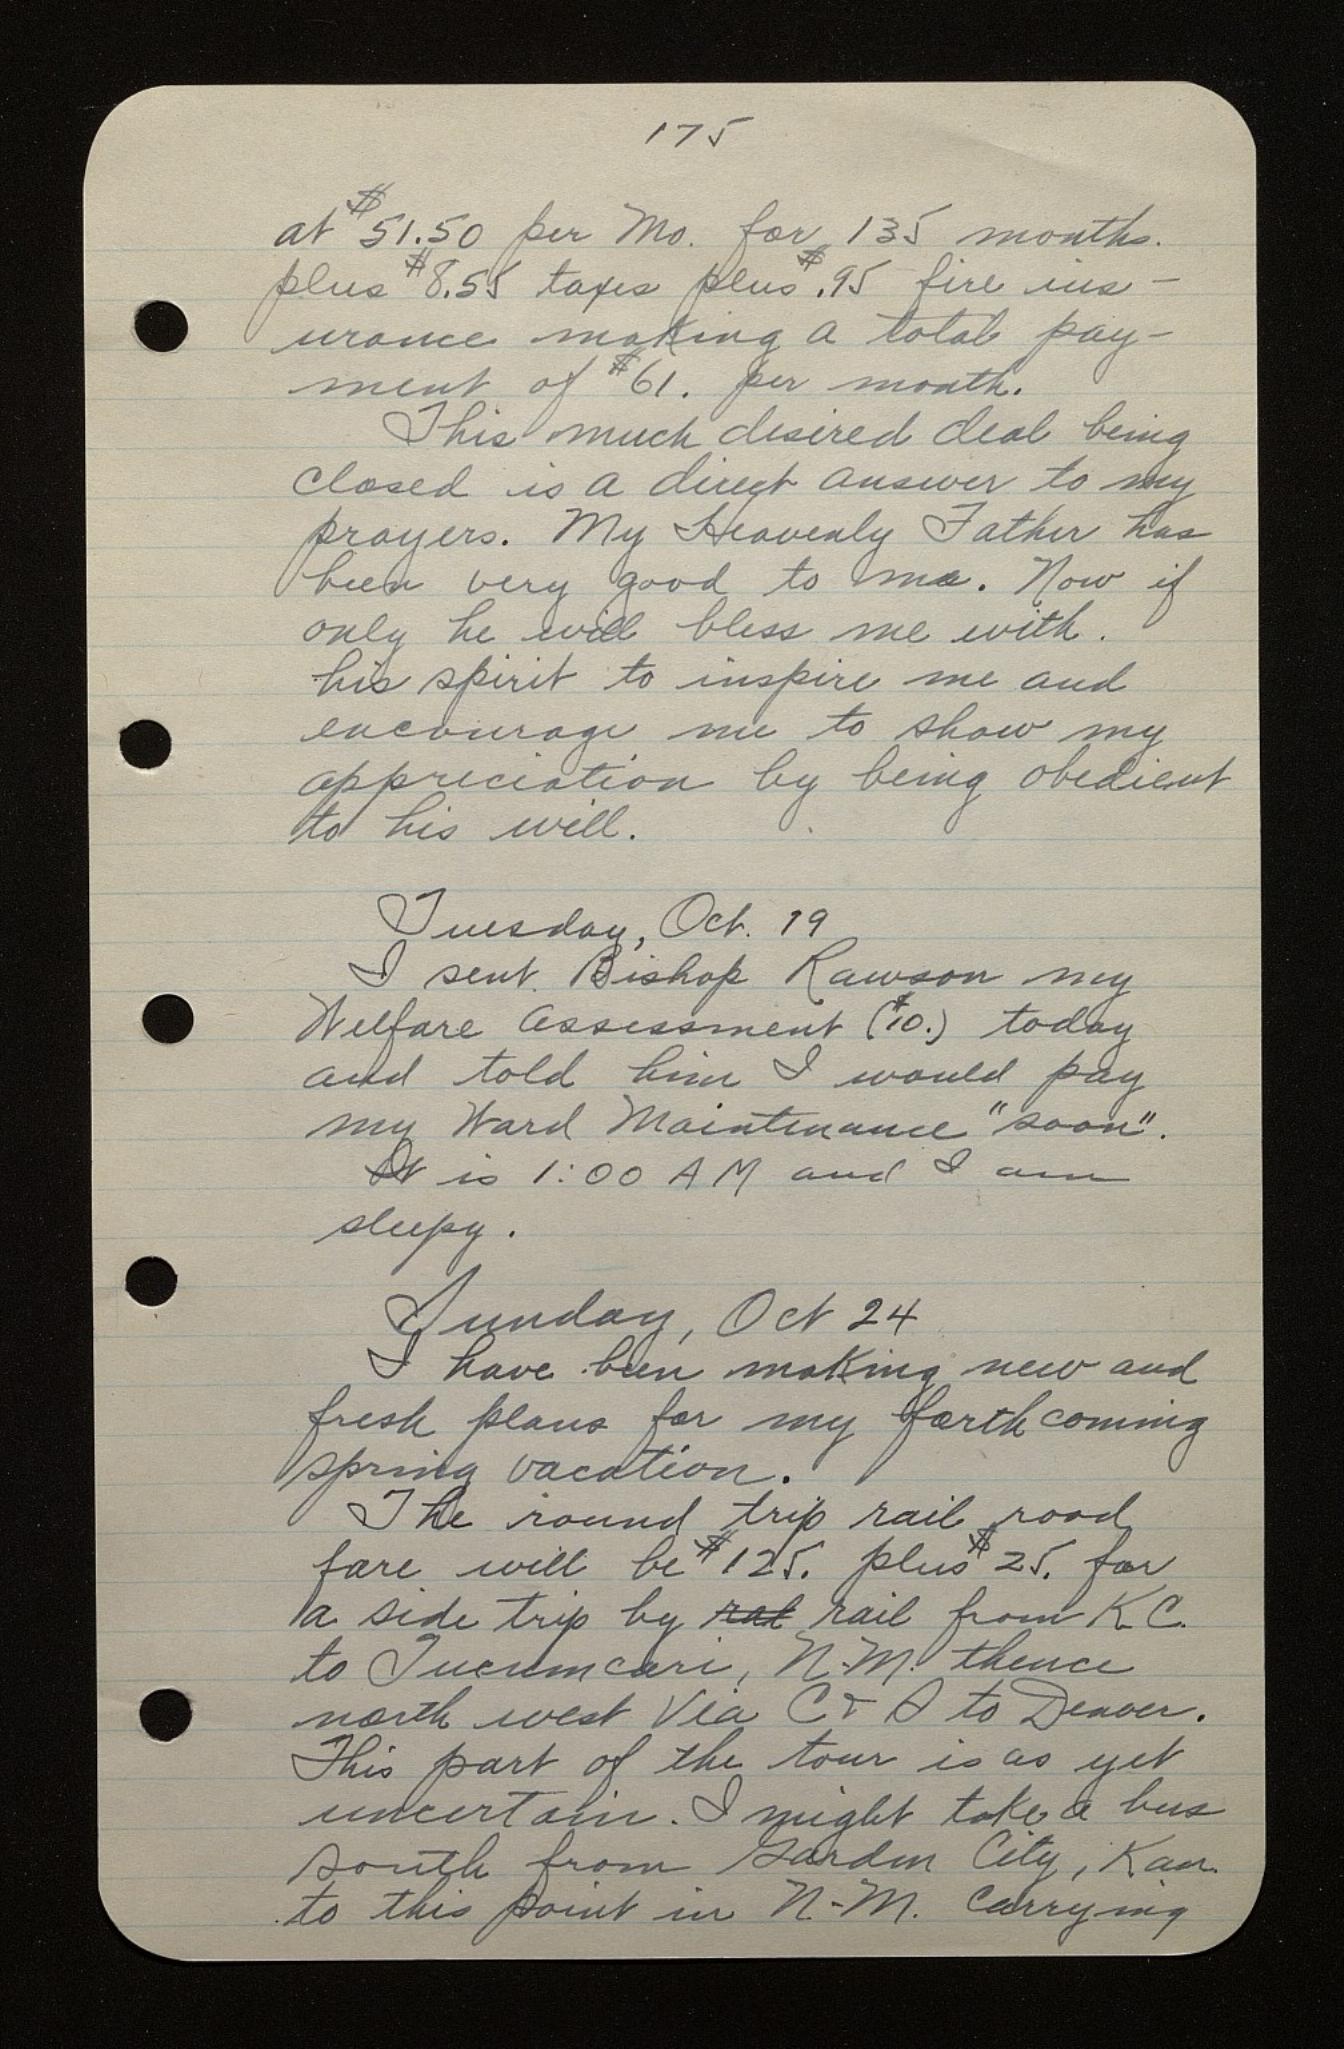 175
at $51.50 per Mo. for 135 months.
plus $8.55 taxes plus $.95 fire ins-
urance making a total pay-
ment of $61. per month.
This much desired deal being
closed is a direct answer to my
prayers. My Heavenly Father has
been very good to me. Now if
only he will bless me with.
his spirit to inspire me and
encourage me to show my
appreciation by being obedient
to his will.
Tuesday, Oct. 19
I sent Bishop Rawson my
Welfare assessment ($10.) today
and told him I would pay
my Ward Maintenance "soon".
It is 1:00 AM and I am
sleepy.
Sunday, Oct 24
I have been making new and
fresh plans for my forthcoming
spring vacation.
The round trip rail road
fare will be $125. plus $25. for
a side trip by rail from K.C.
to Tucumcari, N.M. thence
north west via C & S to Denver.
This part of the tour is as yet
uncertain. I might take a bus
south from Garden City, Kan.
to this point in N-M. carrying